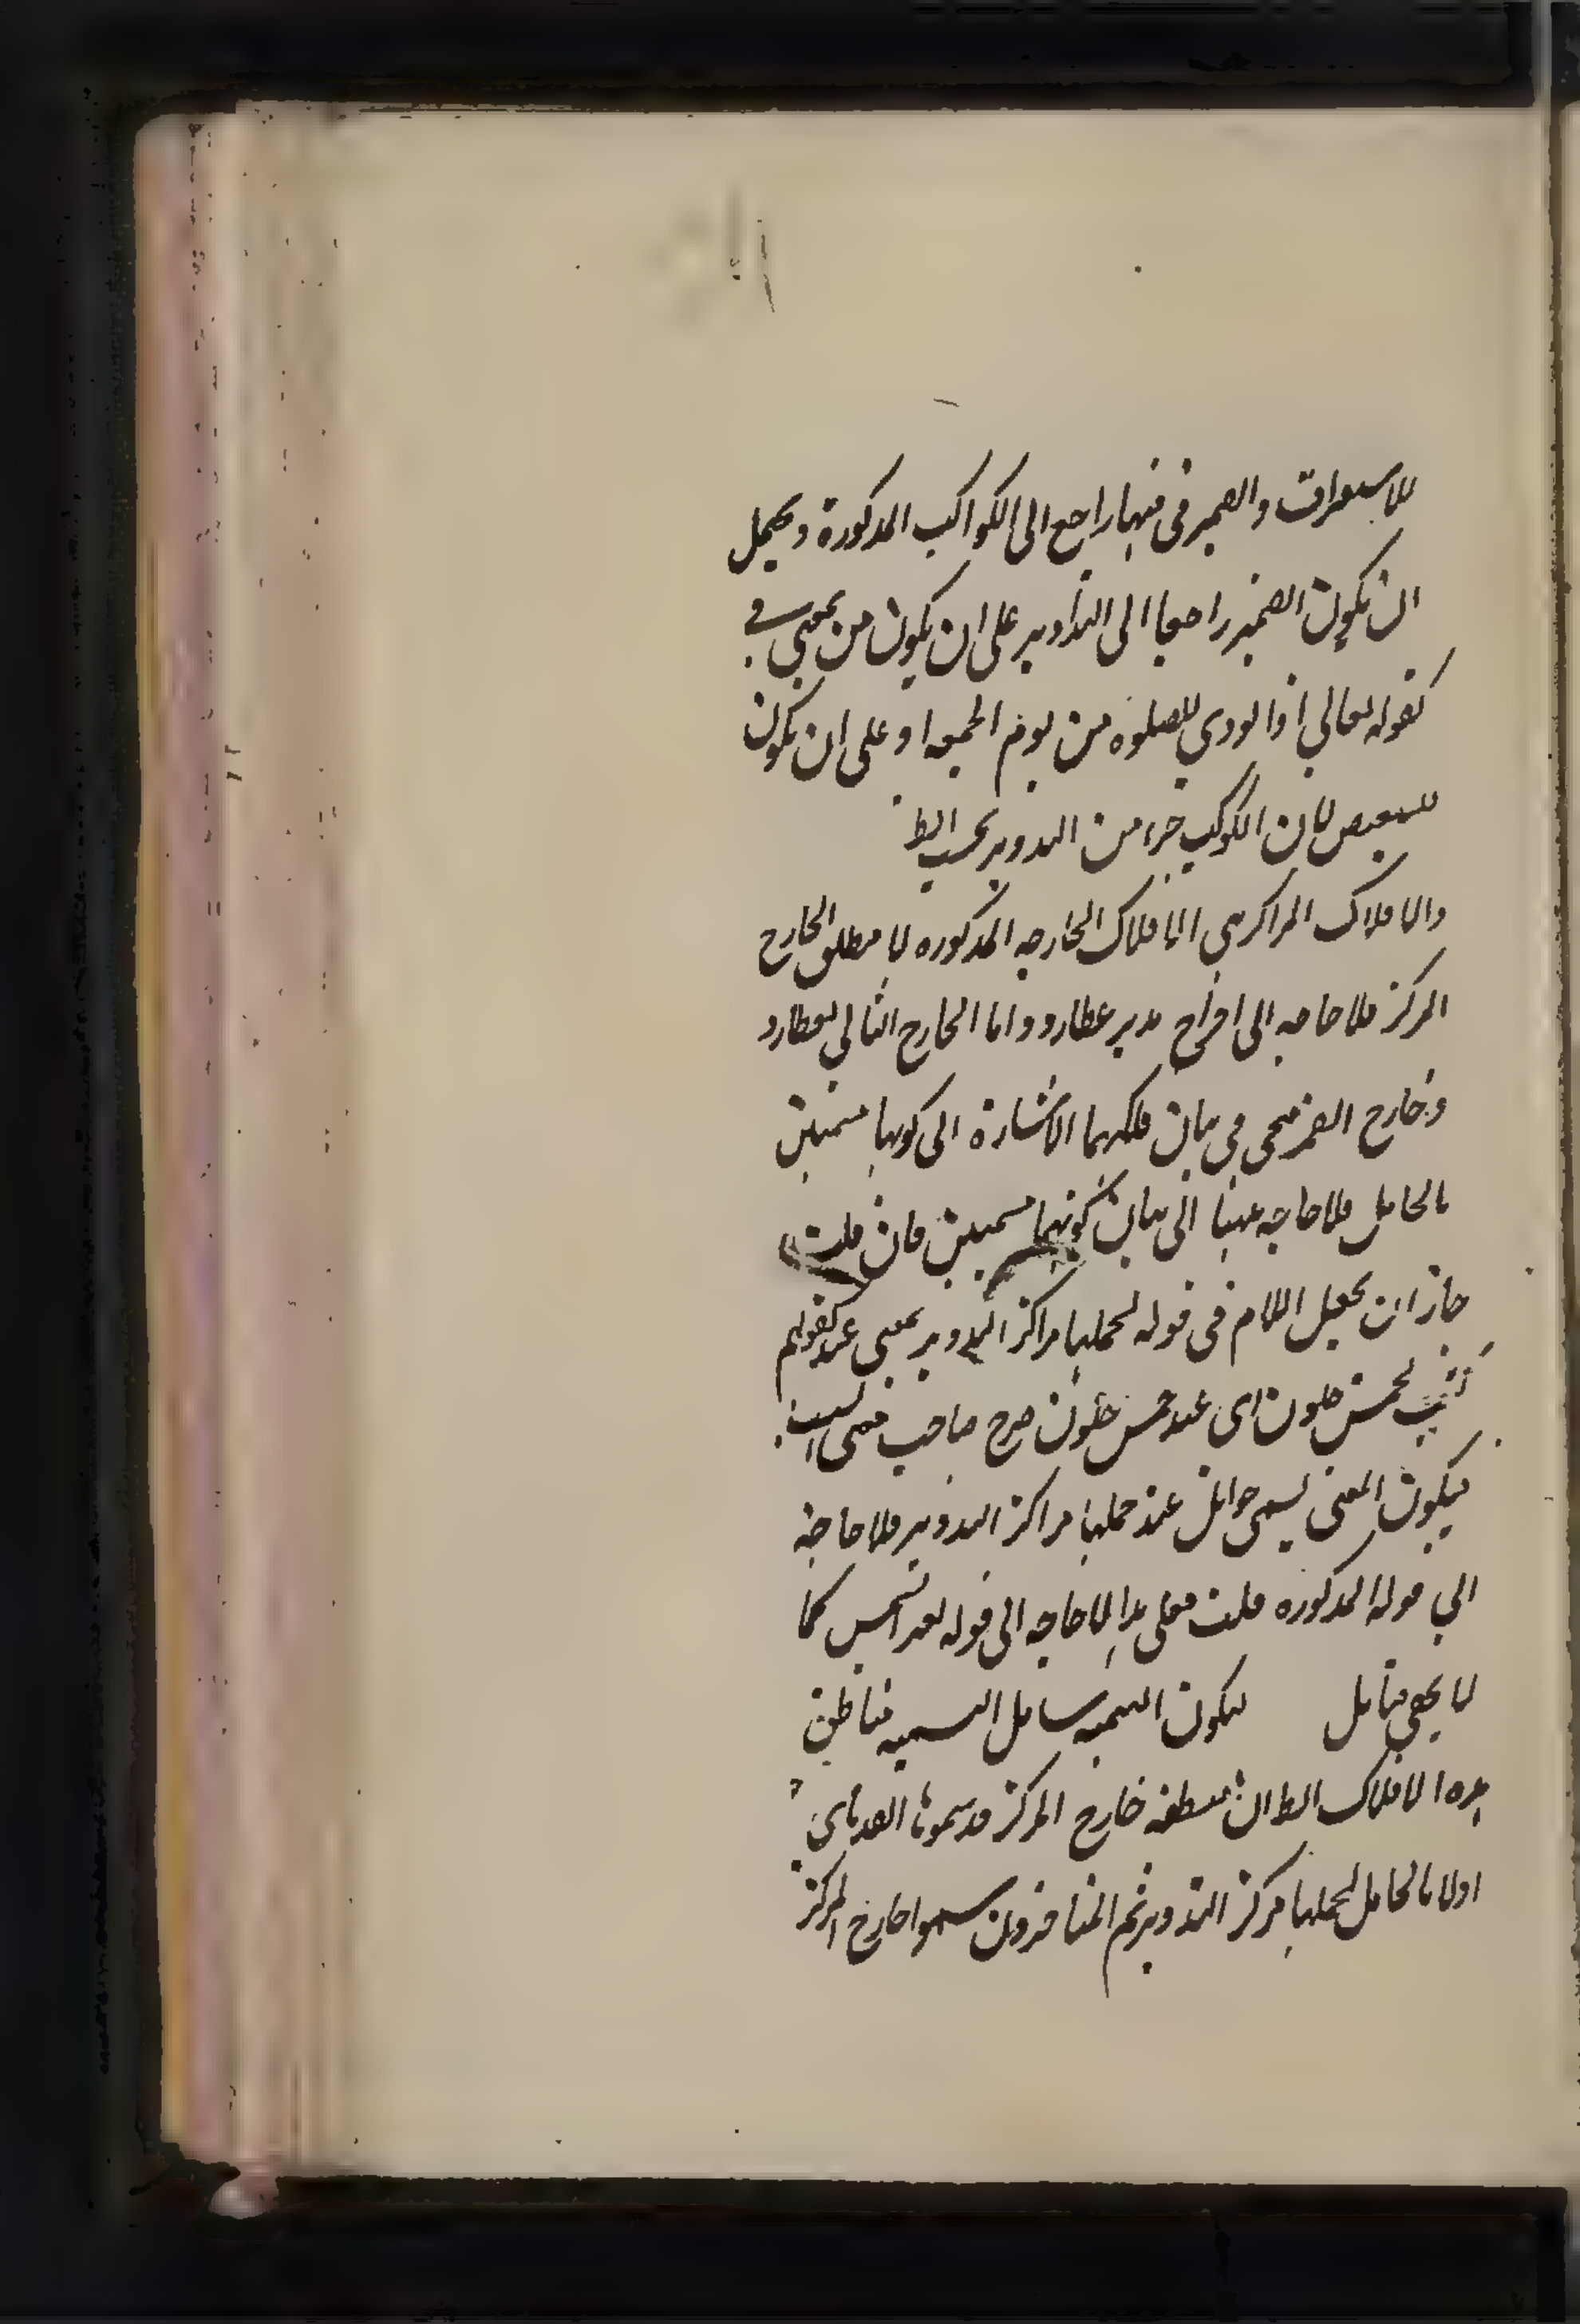 للاستغراق والضمير في فيها راجع الى الكواكب المذكورة ويحتمل
ان يكون الضمير راجعا الى التداوير على ان يكون من بمعنى في
كقوله تعالي اذا نودي للصلوة من يوم الجمعه او على ان يكون
للتبعيض لان الكوكب جزء من التدوير بحسب الظ
والافلاك المراكز هي الافلاك الخارجه المذكوره لا مطلق الخارج
المركز فلا حاجه الى اخراج مدير عطارد واما الخارج الثاني لعطارد
وخارج القمر فيجي في بيان فلكهما الاشارة الى كونهما مسميين
بالحامل فلا حاجه هنا الى بيان كونهما مسميين فان قلت
جاز ان يجعل اللام في قوله لحملها مراكز التدوير بمعنى عند كقولهم
كتبت لخمس خلون اى عند خمس خلون صرح صاحب مغنى اللبيب
فيكون المعنى يسمى حوامل عند حملها مراكز التدوير فلا حاجة
الي قوله المذكوره قلت فعلى هذا لا حاجه الى قوله بعد الشمس كما
لا يخفى فتامل ليكون التسميه
هذه الافلاك الظ ان منطقه خارج المركز قد سموها القدماء اى
اولا بالحامل لحملها مركز التدوير ثم المتاخرون سموا خارج المركز